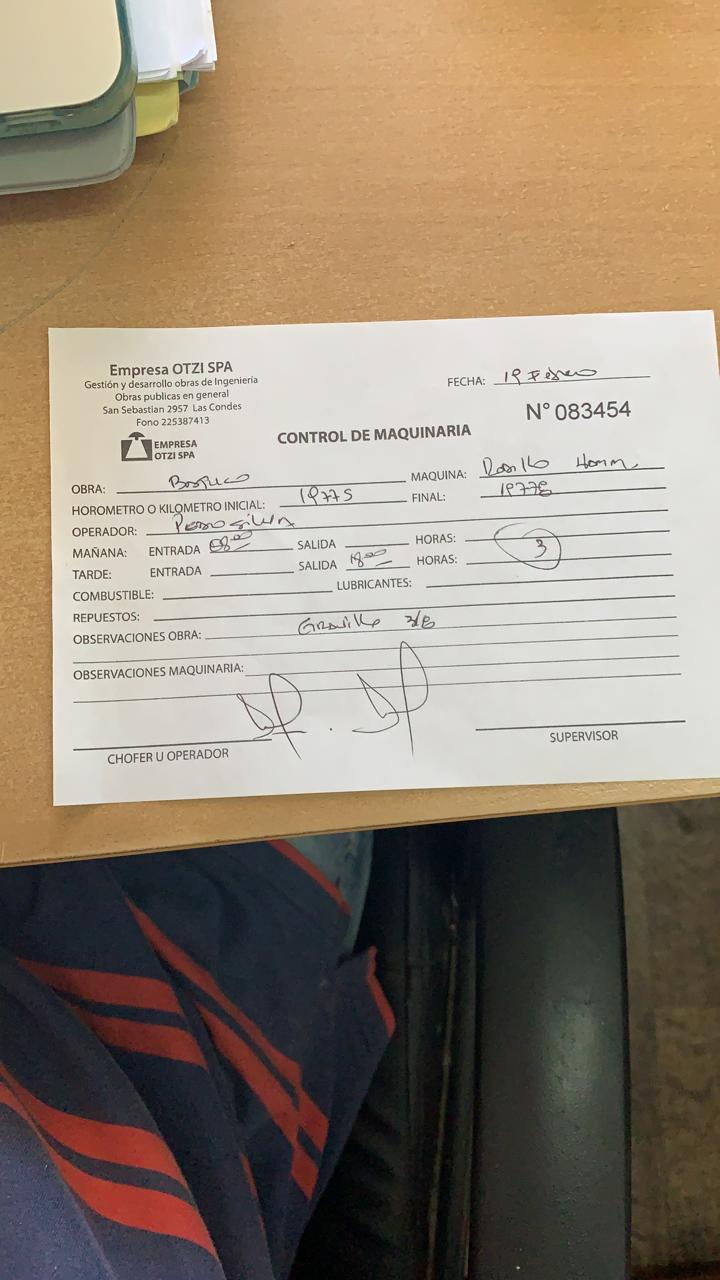 Empresa OTZI SPA
Gestión y desarrollo obras de Ingeniería
Obras publicas en general
San Sebastian 2957 Las Condes
Fono 225387413
EMPRESA
OTZI SPA
FECHA: 19 Febrero
N° 083454
CONTROL DE MAQUINARIA
OBRA:
MAQUINA: Rodillo Hamm
HOROMETRO O KILOMETRO INICIAL: 19775
FINAL: 19778
OPERADOR: Pedro Silva
MAÑANA: ENTRADA 08:00 SALIDA HORAS:
TARDE: ENTRADA SALIDA 18:00 HORAS: 3
COMBUSTIBLE: LUBRICANTES:
REPUESTOS:
OBSERVACIONES OBRA: Gravilla 3/8
OBSERVACIONES MAQUINARIA:
CHOFER U OPERADOR
SUPERVISOR